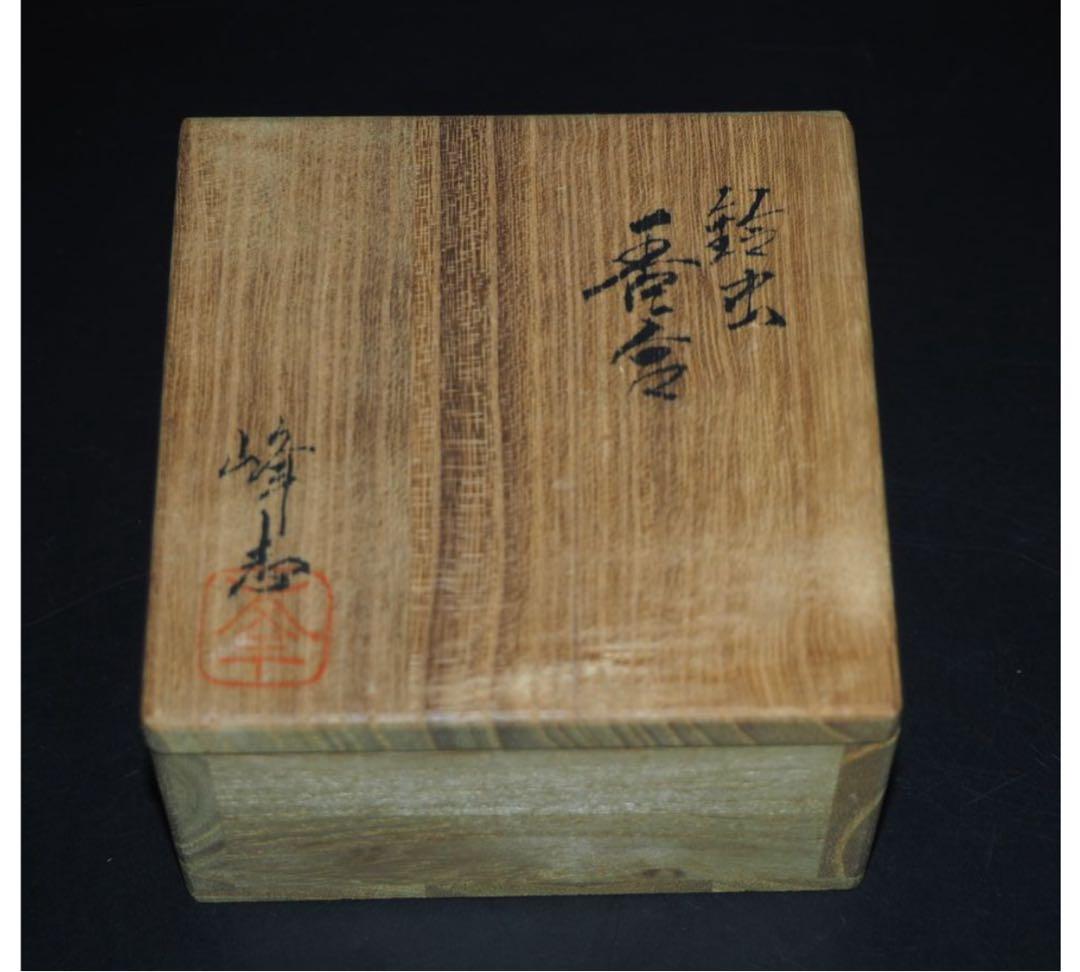 鈴虫
香合
峰志